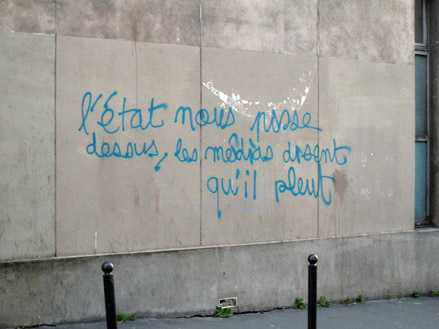 l'État nous pisse
dessus, les médias disent
qu'il pleut